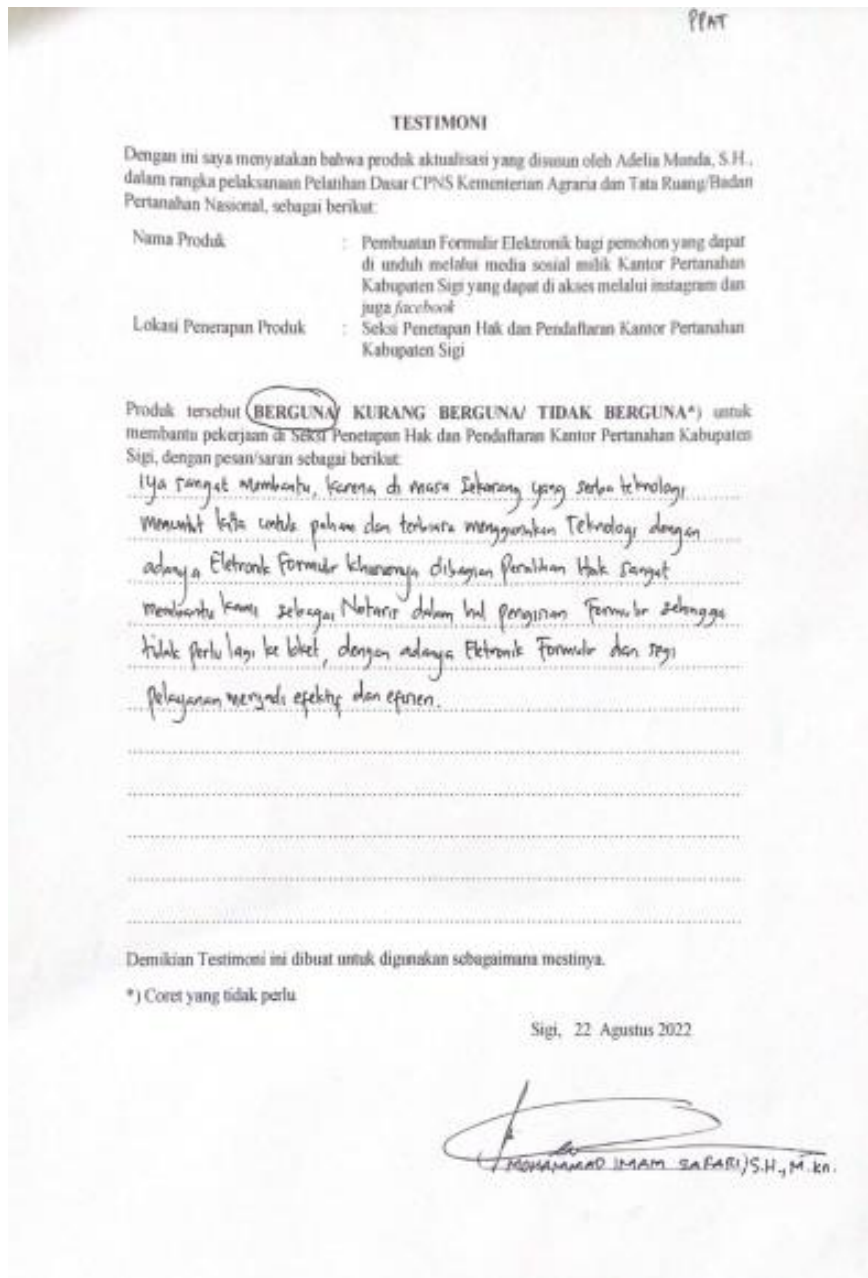 PPAT
TESTIMONI
Dengan ini saya menyatakan bahwa produk aktualisasi yang disusun oleh Adelia Munda, S.H.,
dalam rangka pelaksanaan Pelatihan Dasar CPNS Kementerian Agraria dan Tata Ruang/Badan
Pertanahan Nasional, sebagai berikut:
Nama Produk : Pembuatan Formulir Elektronik bagi pemohon yang dapat
di unduh melalui media sosial milik Kantor Pertanahan
Kabupaten Sigi yang dapat di akses melalui instagram dan
juga facebook
Lokasi Penerapan Produk : Seksi Penetapan Hak dan Pendaftaran Kantor Pertanahan
Kabupaten Sigi
Produk tersebut (BERGUNA/ KURANG BERGUNA/ TIDAK BERGUNA*) untuk
membantu pekerjaan di Seksi Penetapan Hak dan Pendaftaran Kantor Pertanahan Kabupaten
Sigi, dengan pesan/saran sebagai berikut:
Iya sangat membantu, karena di masa sekarang yang serba teknologi
menuntut kita untuk paham dan menggunakan Teknologi dengan
adanya Eletronik Formulir khususnya dibagian Peralihan Hak sangat
membantu kami sebagai Notaris dalam hal pengisian Formulir sehingga
tidak perlu lagi ke loket, dengan adanya Elktronik Formulir dan segi
pelayanan menjadi efektif dan efisien.
Demikian Testimoni ini dibuat untuk digunakan sebagaimana mestinya.
*) Coret yang tidak perlu
Sigi, 22 Agustus 2022
MOHAMMAD IMAM SAFARI, S.H., M.kn.